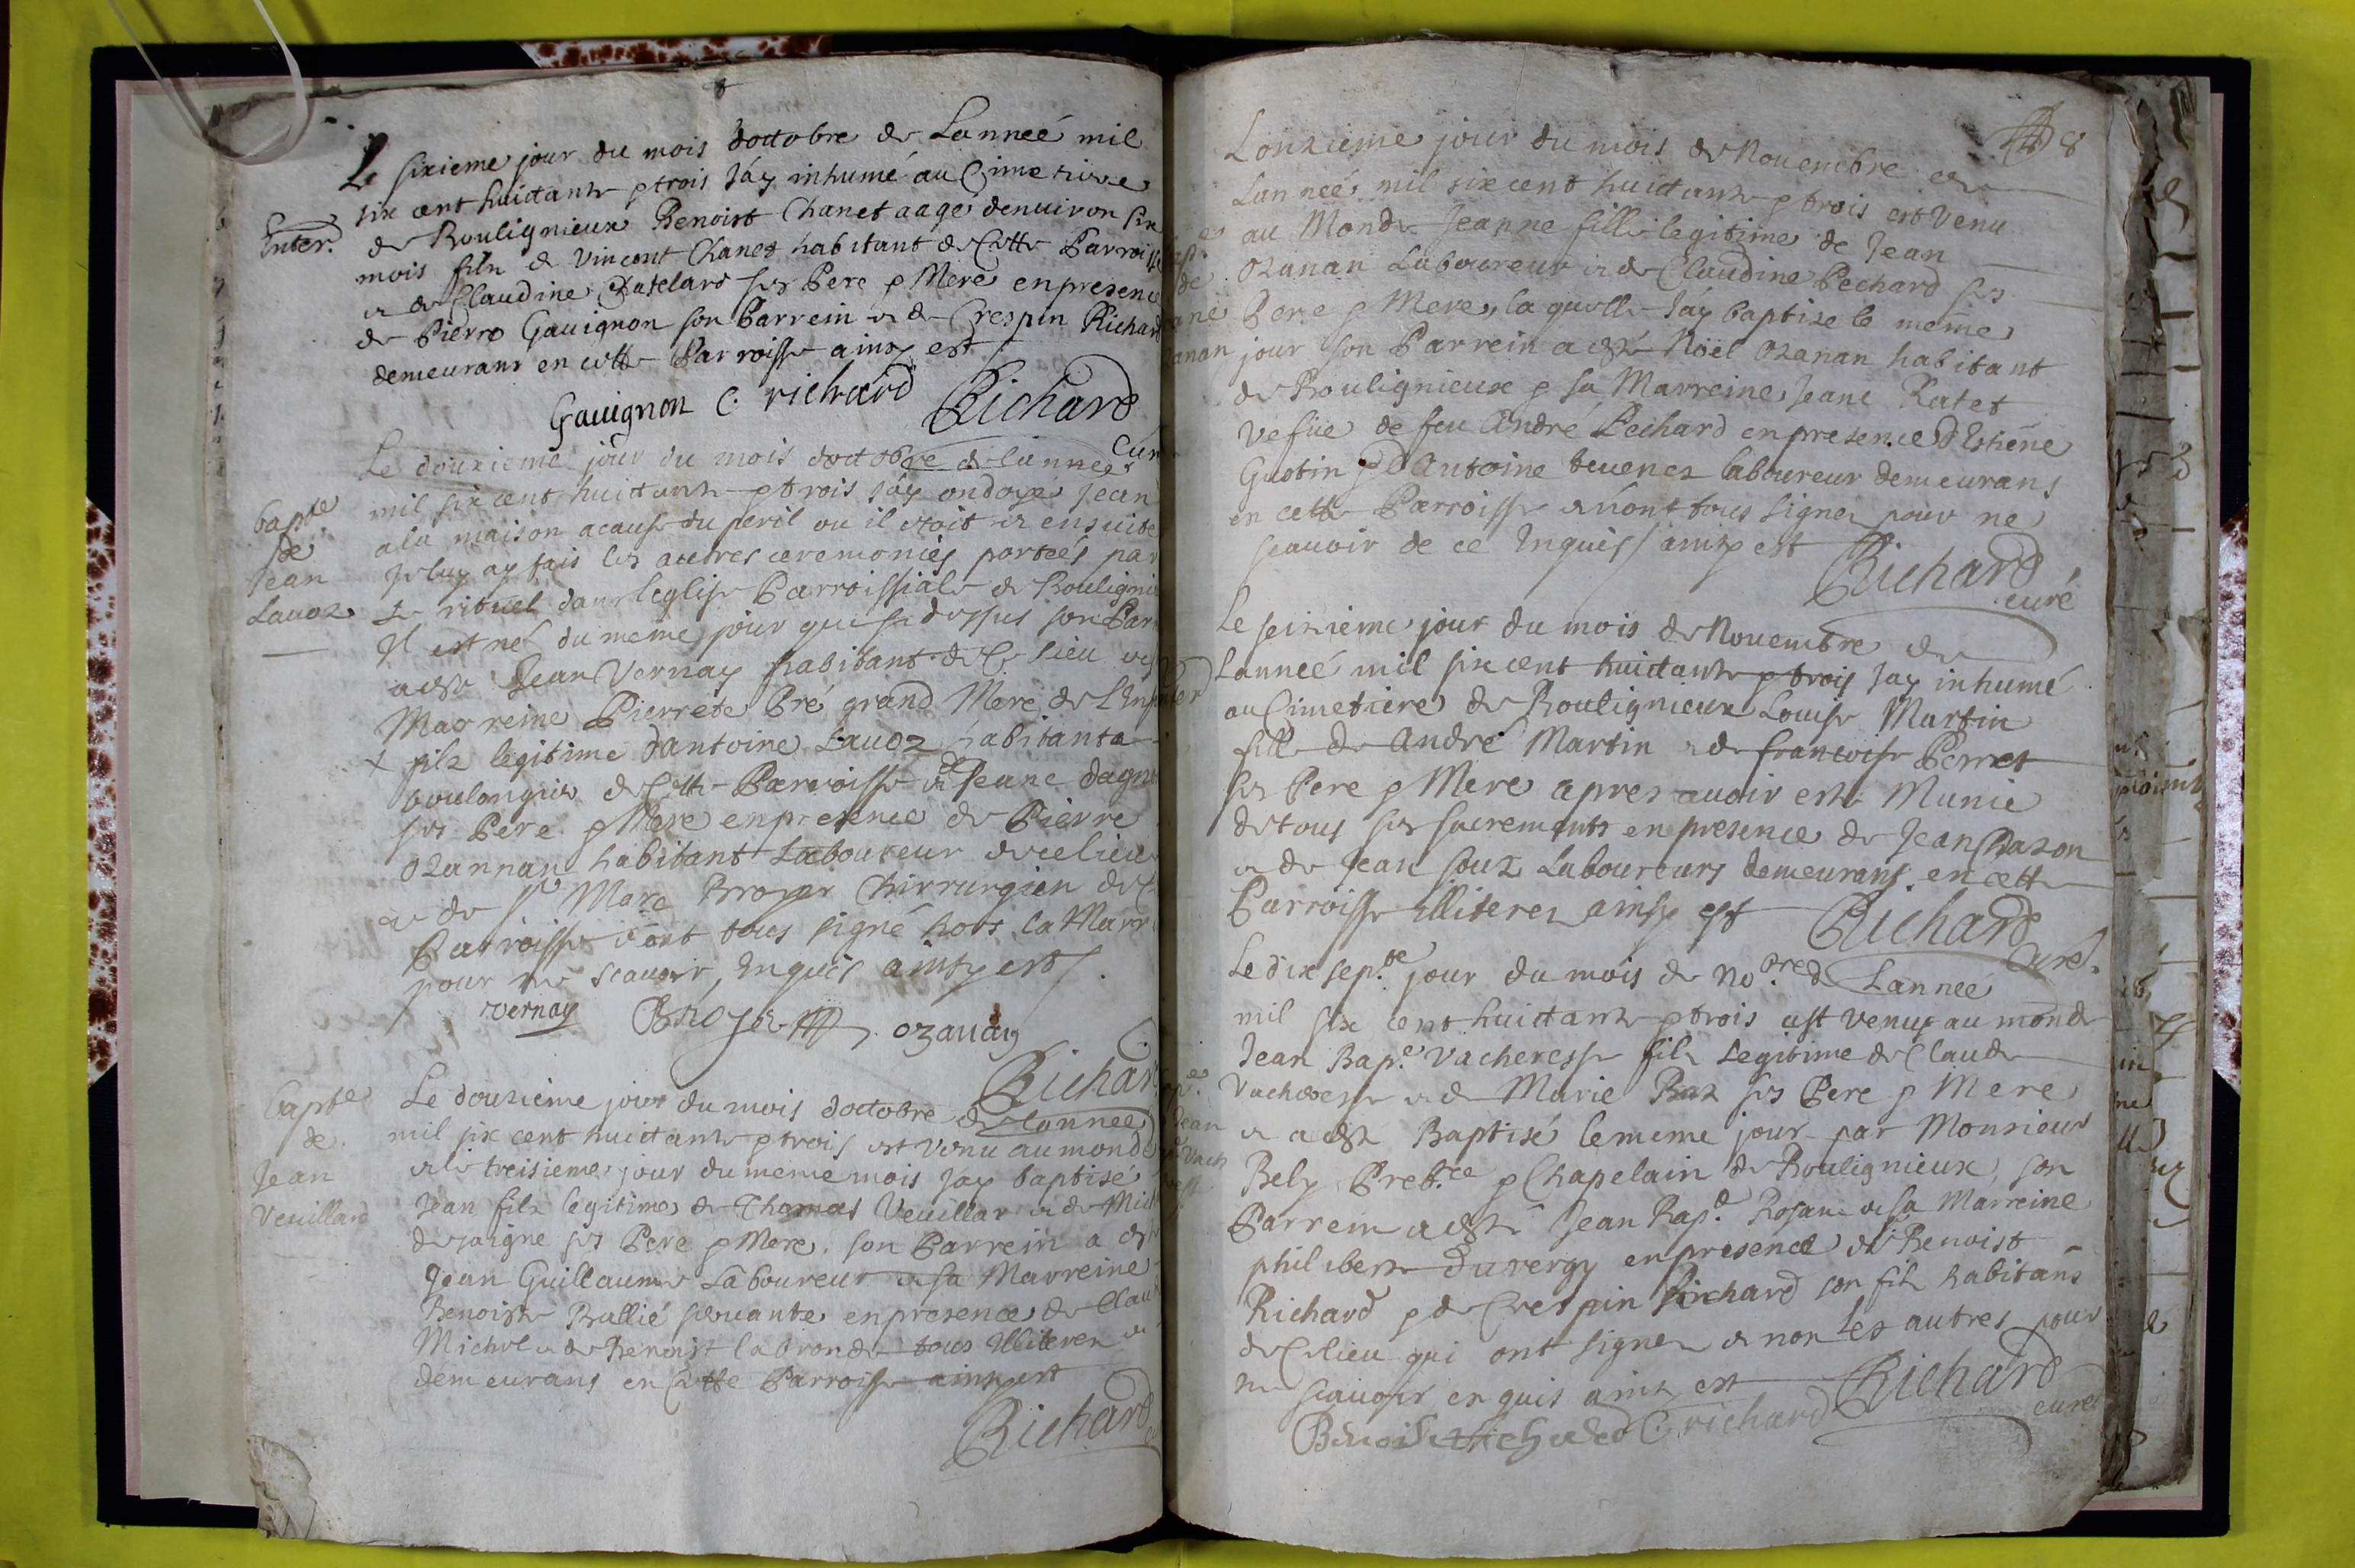 Le sixieme jour du mois doctobre de Lanneé mil
six cent huictante et trois Jáy inhumé au Cimetiere
Enter.
de Boulignieux Benoist Chanet aagé denuiron six
mois filz de Vincent Chanet habitant de Cette Parroisse
et de Claudine Chatelard ses Pere et Mere en presence
de Pierre Gauignon son Parrein et de Crespin Richard
demeurans en cette Parroisse ainsy est
Gauignon C. richard Richard
Cur
Le douzieme jour du mois doctobre de lannee
mil six cent huictante et trois Jáy ondoyé Jean
bapte
de
Jean
Lauoz
a la maison a cause du peril ou il etoit et ensuite
Je luy ay fais les autres ceremonies porteés par
Le rituel dans leglise Parroissiale de Bouligni
Il est né du meme jour que ci dessus son Par
a esté Jean Vernay habitant de Ce lieu et sa
Marreine Pierrete Pré grand Mere de L'Enf
+ filz legitime dantoine Lauoz habitant a
boulongnieu de Cette Parroisse et de Jeane dagn
ses Pere et Mere en presence de Pierre
Ozannan habitant Laboureur de ce lieu
et de Sr Marc Broyer Chirrurgien de C
Parroisse et ont tous signé hors la Marr
pour ne scauoir, Enquis ainsy est
vernay Broyer ozanan
Richar
bapte
de
Jean
Veuillard
Le douzieme jour du mois doctobre de Lannee
mil six cent huictante et trois est venu au monde
et le treisieme jour du meme mois Jay baptisé
Jean filz legitime de Thomas Veuillar et de Mich
dejaigne ses Pere et Mere. son Parrein a esté
Jean Guillaume Laboureur et sa Marreine
Benoiste Rullié seruante en presence de Clau
Michel et de Benoist labronde tous Illiterez et
demeurans en Cette Parroisse ainsy est
Richard
8
Lonzieme jour du mois de Nouembre de
Lanneé mil six cent huictante et trois est Venu
au Monde Jeanne fille legitime de Jean
Ozanan Laboureur et de Claudine Pechard ses
Pere et Mere, la quelle Jáy baptizé le meme
jour son Parrein a esté Noël Ozanan habitant
de Bouligneux et sa Marreine Jeane Ratet
Vefüe de feu André Pechard en presence d'Estiene
Guotin et d'Antoine teuenez laboureur demeurans
en cette Parroisse et n'ont tous signez pour ne
scauoir de ce Enquis / ainsy est
Richard
curé
Le seizieme jour du mois de Nouembre de
Lanneé mil six cent huictante et trois Jay inhumé
au Cimetiere de Bouligneux Louise Martin
fille de André Martin et de francoise Perret
ses Pere et Mere apres auoir esté Munie
de tous ses sacrements en presence de Jean Chazon
et de Jean souz Laboureurs demeurans en cette
Parroisse illiterez ainsy est
Richard
Curé.
Le dix sep.te jour du mois de No.bre de Lannee
mil six cent huictante et trois est venu au monde
Jean Bap.te Vacheresse filz Legitime de Claude
Vacheresse et de Marie Buz ses Pere et Mere
et a esté Baptisé le meme jour par Monsieur
Bely Preb.tre et Chapelain de Bouligneux, son
Parrein a esté Jean Bap.te Rojane et sa Marreine
philiberte Duvergy en presence de Benoist
Richard et de Crespin Richard son filz habitans
de Ce lieu qui ont signez et non Les autres pour
ne scauoir enquis ainsy est
Richard
curé
Benoist richard C. richard